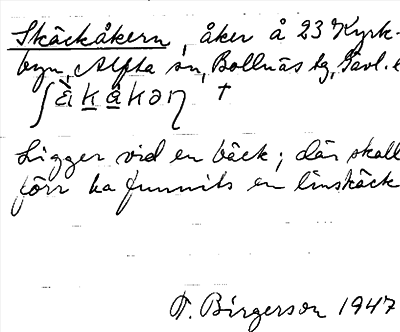 Skäckåkern, åker å 23 Kyrk-
byn, Alfta sn, Bollnäs tg, Gävl. l
ʃäkåkəɳ †
Ligger vid en bäck; där skall
förr ha funnits en linskäck
T. Birgerson 1947